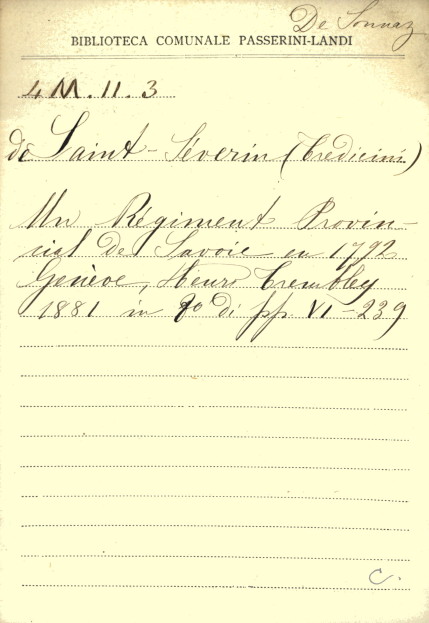 De Sonnaz
BIBLIOTECA COMUNALE PASSERINI-LANDI
4 M. II. 3
de Saint-Séverin (Tredicini)
Un Régiment Provin-
cial de Savoie en 1792
Genève, Henri Trembley
1881 in 8º di pp. VI-239
C.